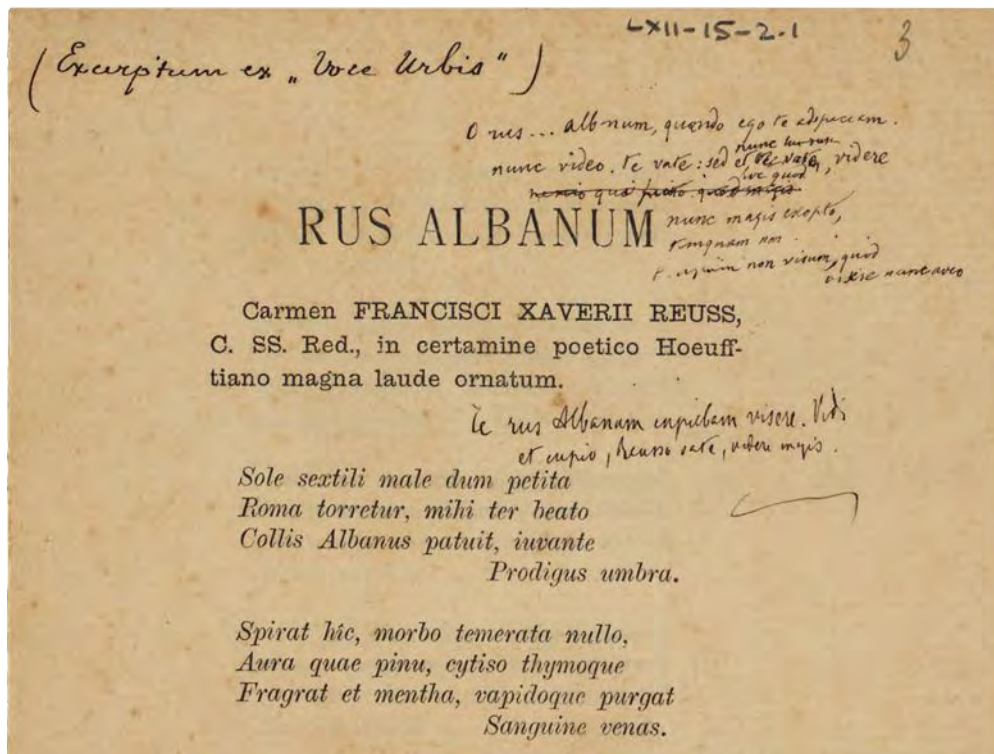 LXII-15-2.1
3
(Excerptum ex „Voce Urbis")
O rus... albnum, quando ego te adspiciam.
nunc video. te vate: sed et te vate, videre
nunc magis exopto,
non visum, quod
RUS ALBANUM
Carmen FRANCISCI XAVERII REUSS,
C. SS. Red., in certamine poetico Hoeuff-
tiano magna laude ornatum.
Te rus Albanam cupiebam visere. Vidi
et cupio, Reusso vate, videre magis.
Sole sextili male dum petita
Roma torretur, mihi ter beato
Collis Albanus patuit, iuvante
Prodigus umbra.
Spirat hîc, morbo temerata nullo,
Aura quae pinu, cytiso thymoque
Fragrat et mentha, vapidoque purgat
Sanguine venas.